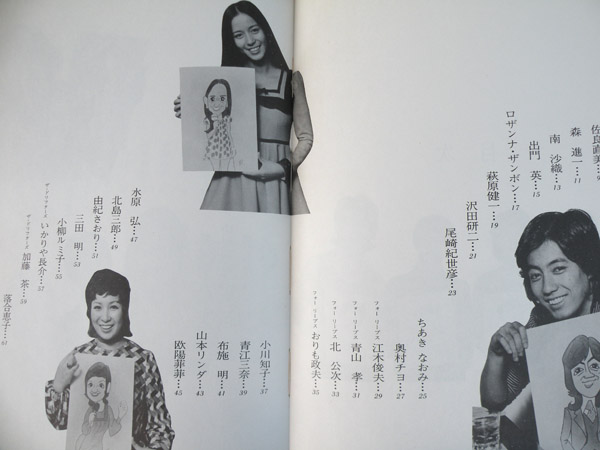 佐良直美…9
森　進一…11
南　沙織…13
出門　英…15
ロザンナ・ザンボン…17
萩原健一…19
沢田研二…21
尾崎紀世彦…23
ちあき なおみ…25
奥村チヨ…27
フォー リーブス 江木俊夫…29
フォー リーブス 青山　孝…31
フォー リーブス 北　公次…33
フォー リーブス おりも政夫…35
小川知子…37
青江三奈…39
布施　明…41
山本リンダ…43
欧陽菲菲…45
水原　弘…47
北島三郎…49
由紀さおり…51
三田　明…53
小柳ルミ子…55
ザ・ドリフターズ いかりや長介…57
ザ・ドリフターズ 加藤　茶…59
落合恵子…61